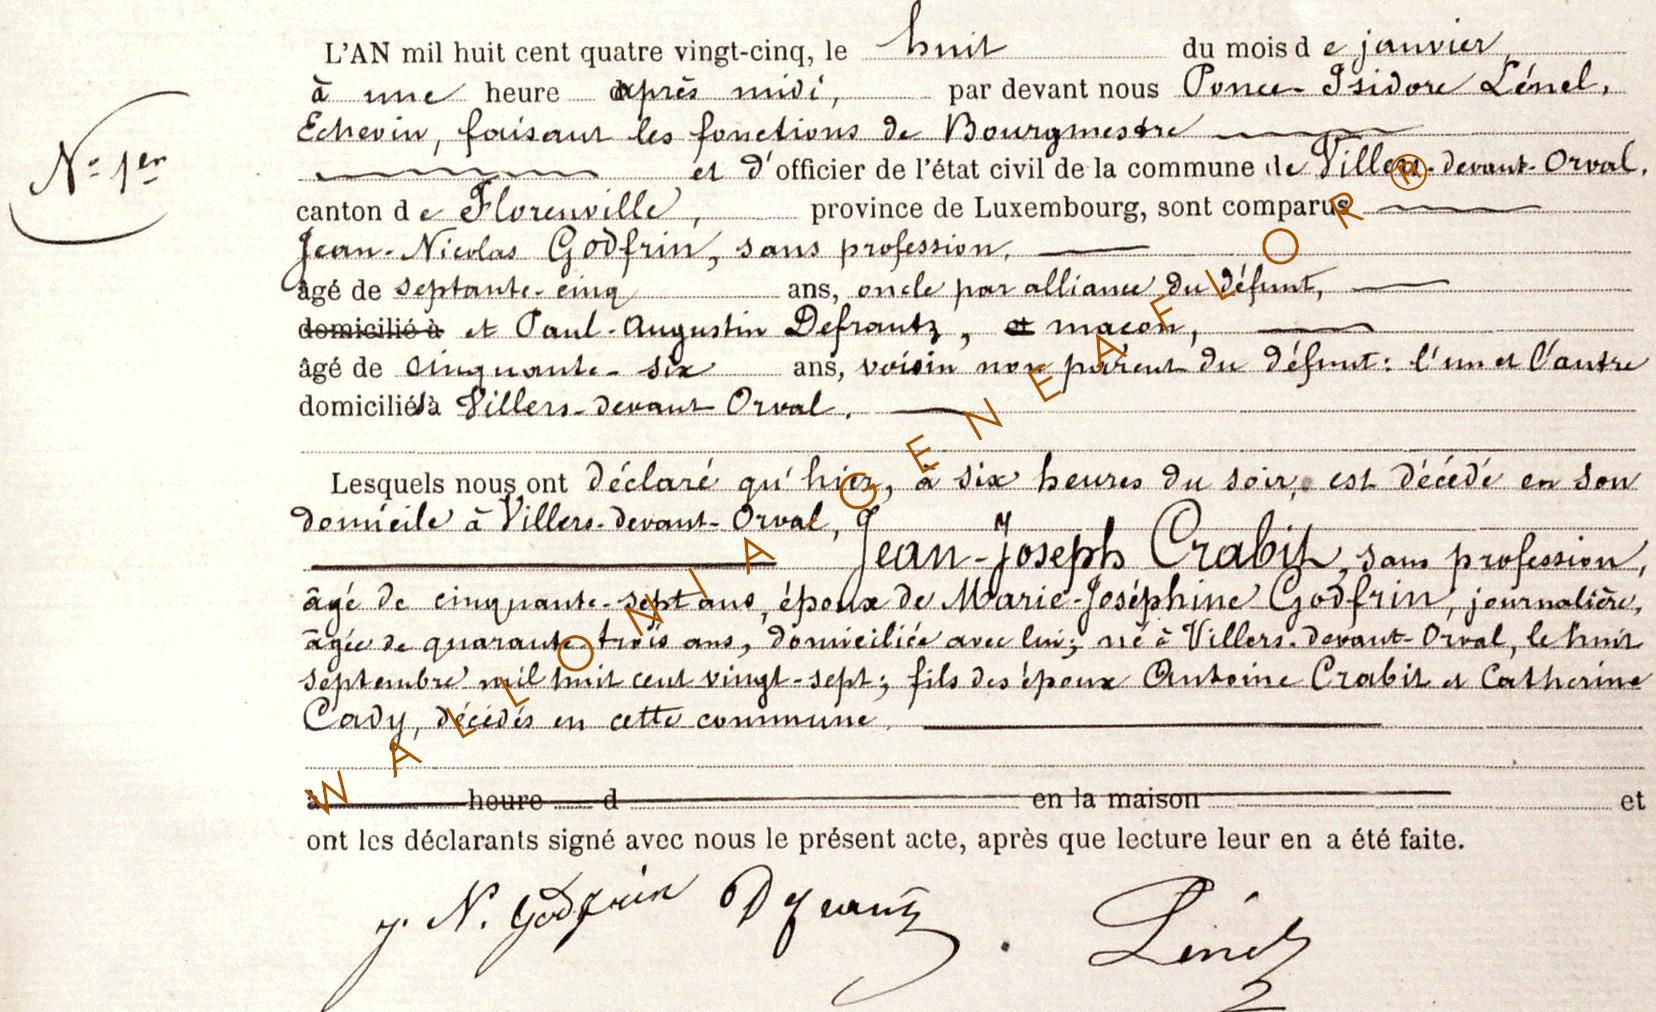 L'AN mil huit cent quatre vingt-cinq, le huit du mois de janvier,
à une heure après midi, par devant nous Ponce-Isidore Lénel,
Echevin, faisant les fonctions de Bourgmestre
N° 1er
et d'officier de l'état civil de la commune de Villers-devant-Orval,
canton de Florenville, province de Luxembourg, sont comparus
Jean-Nicolas Godfrin, sans profession,
âgé de septante-cinq ans, oncle par alliance du défunt,
domicilié à et Paul-Augustin Defrantz, et maçon,
âgé de cinquante-six ans, voisin non parent du défunt: l'un et l'autre
domiciliés à Villers-devant-Orval.
Lesquels nous ont déclaré qu'hier, à six heures du soir, est décédé en son
domicile à Villers-devant-Orval,
Jean-Joseph Crabit, sans profession,
âgé de cinquante-sept ans, époux de Marie-Joséphine Godfrin, journalière,
âgée de quarante-trois ans, domiciliée avec lui; né à Villers-devant-Orval, le huit
septembre mil huit cent vingt-sept; fils des époux Antoine Crabit et Catherine
Cady, décédés en cette commune.
à heure d en la maison et
ont les déclarants signé avec nous le présent acte, après que lecture leur en a été faite.
J. N. Godfrin Defrantz Lénel
WALLONIA GENEAFLORR®